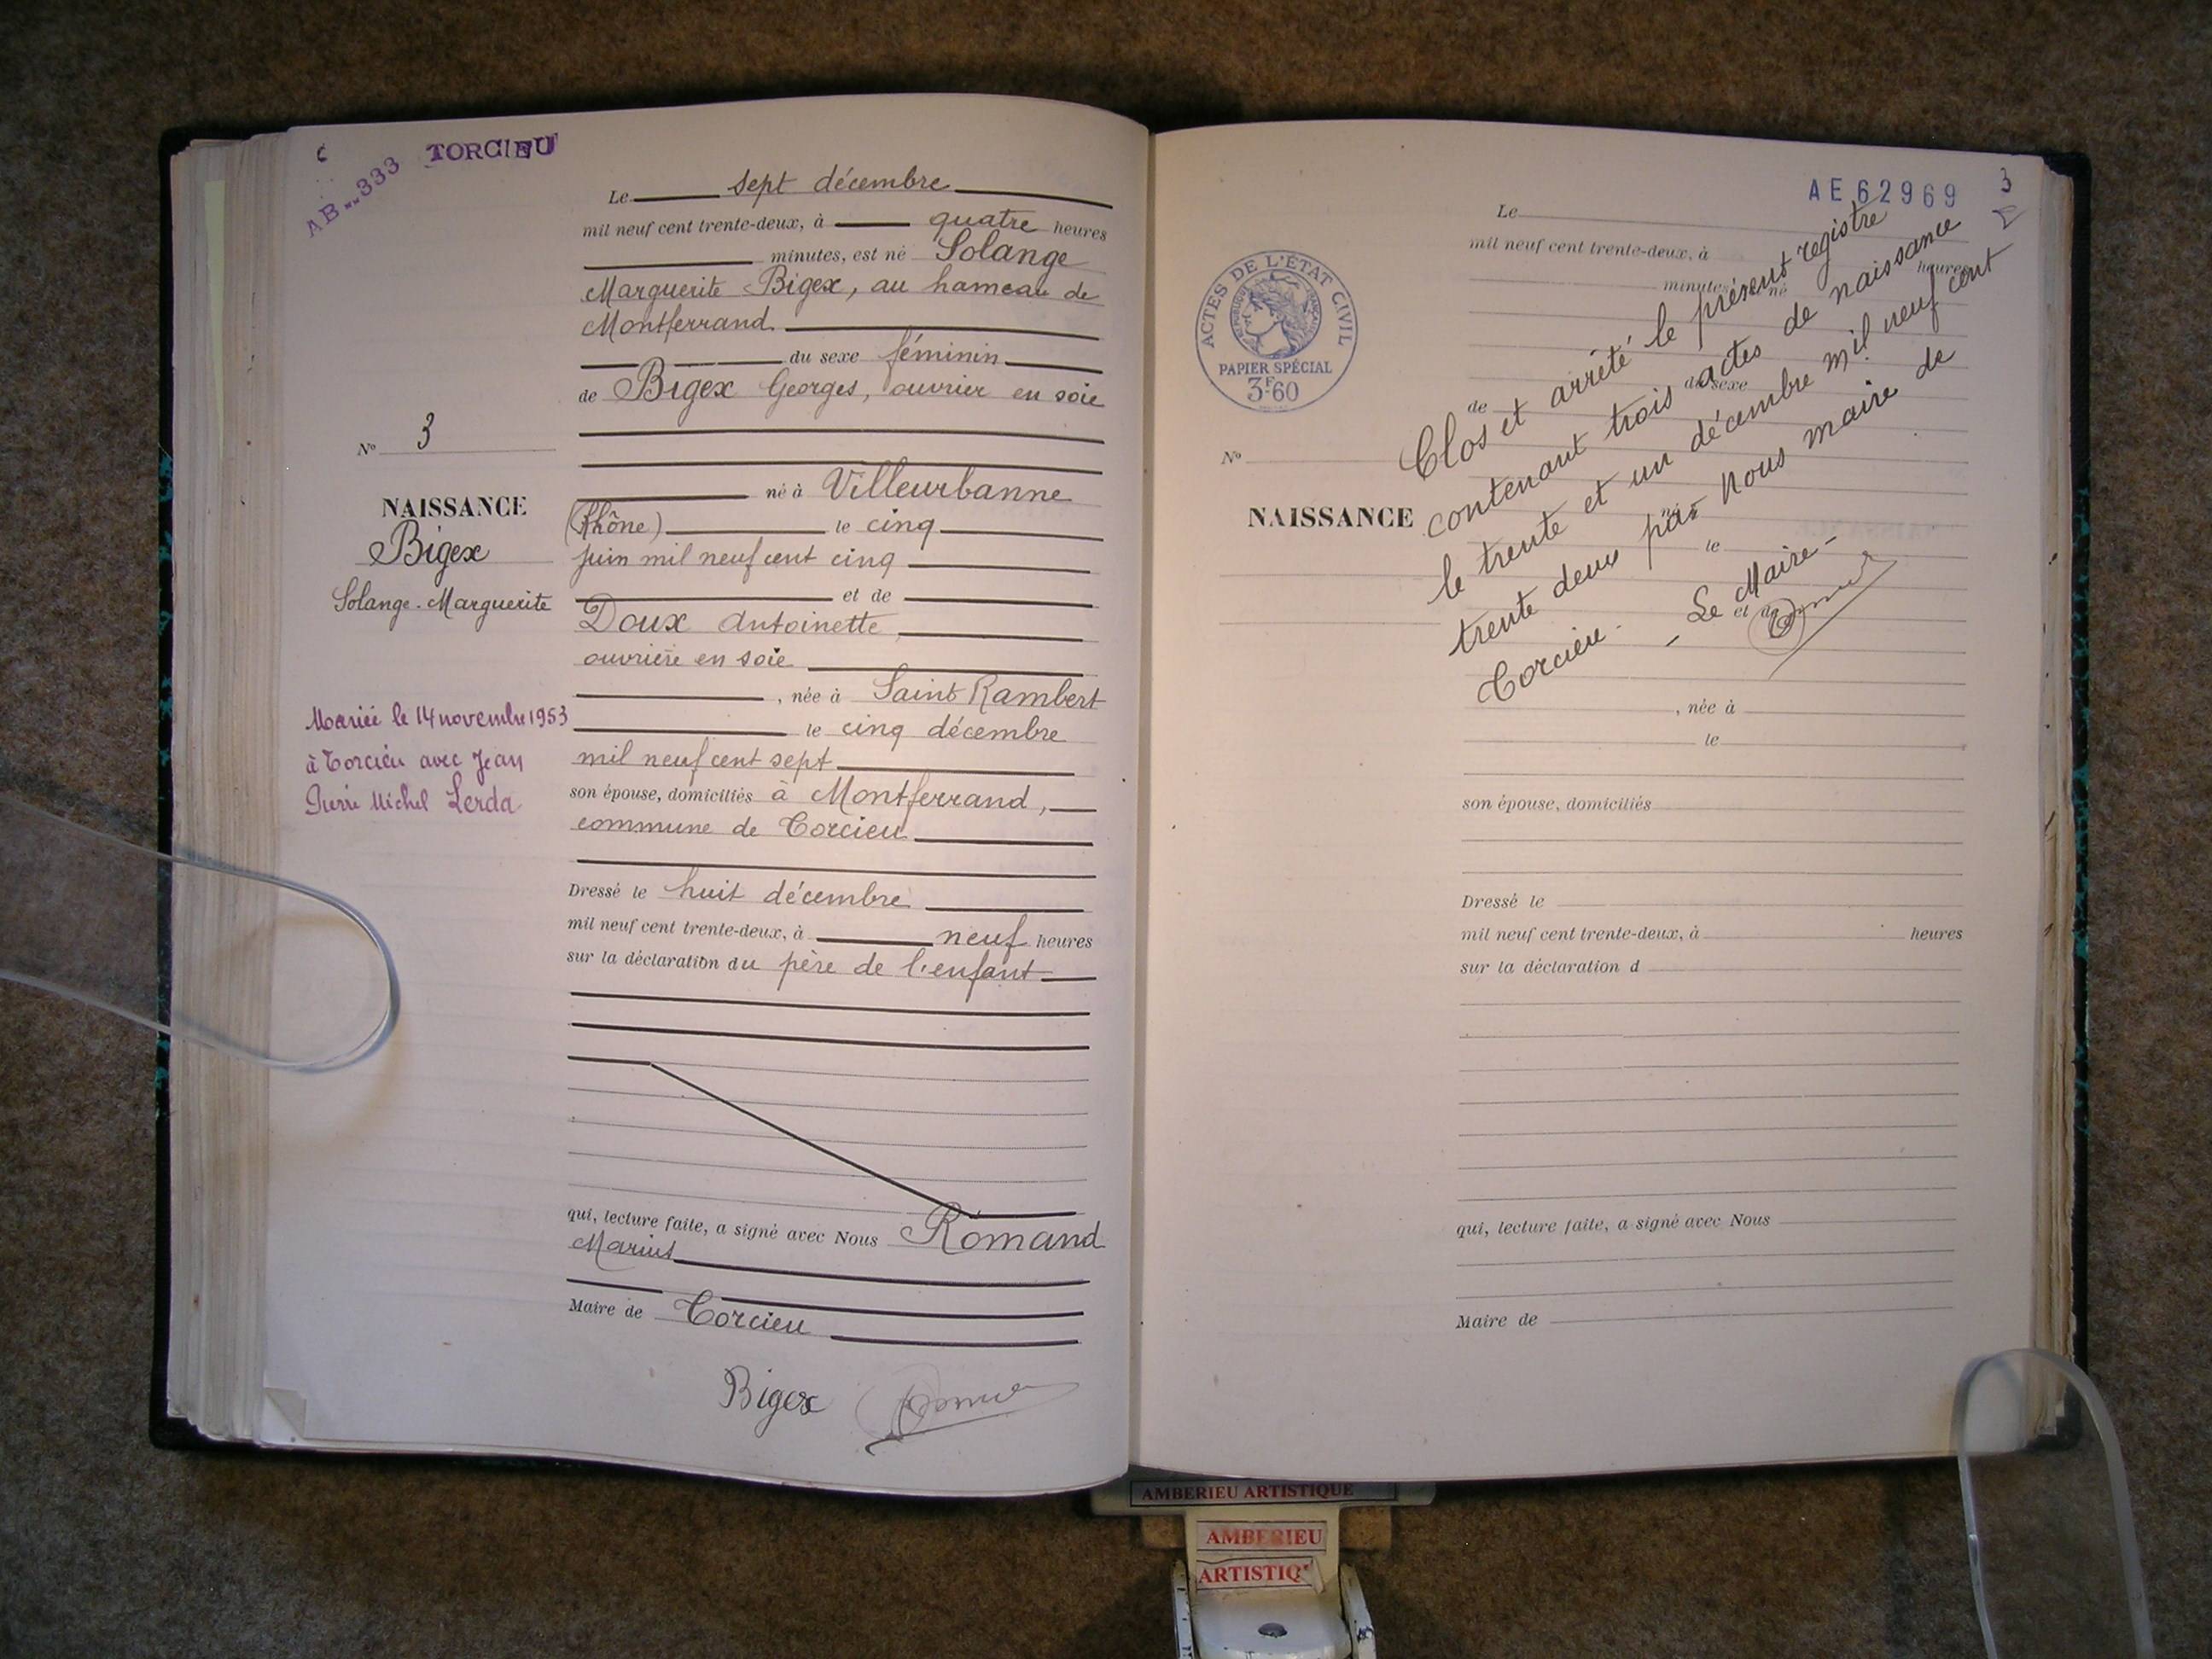 AB..333 TORCIEU
Le sept décembre
mil neuf cent trente-deux, à quatre heures
minutes, est né Solange
Marguerite Bigex, au hameau de
Montferrand.
du sexe féminin
de Bigex Georges, ouvrier en soie
né à Villeurbanne
(Rhône) le cinq
juin mil neuf cent cinq
et de
Doux Antoinette,
ouvrière en soie
, née à Saint Rambert
le cinq décembre
mil neuf cent sept
son épouse, domiciliés à Montferrand,
commune de Torcieu
Dressé le huit décembre
mil neuf cent trente-deux, à neuf heures
sur la déclaration du père de l'enfant
qui, lecture faite, a signé avec Nous Romand
Marius
Maire de Torcieu
Bigex
No 3
NAISSANCE
Bigex
Solange-Marguerite
Mariée le 14 novembre 1953
à Torcieu avec Jean
Pierre Michel Lerda
AE62969
3
ACTES DE L'ÉTAT CIVIL
RÉPUBLIQUE FRANÇAISE
PAPIER SPÉCIAL
3F60
No
NAISSANCE
Le
mil neuf cent trente-deux, à
heures
minutes, est né
du sexe
de
né à
le
et de
, née à
le
son épouse, domiciliés
Dressé le
mil neuf cent trente-deux, à heures
sur la déclaration d
qui, lecture faite, a signé avec Nous
Maire de
Clos et arrêté le présent registre
contenant trois actes de naissance
le trente et un décembre mil neuf cent
trente deux par nous maire de
Torcieu.
Le Maire
AMBERIEU ARTISTIQUE
AMBERIEU
ARTISTIQ